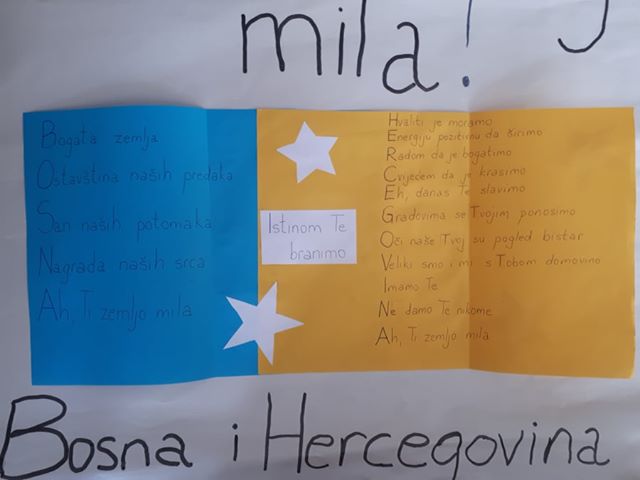 mila!
Bogata zemlja
Ostavština naših predaka
San naših potomaka
Nagrada naših srca
Ah, Ti zemljo mila
Istinom Te
branimo
Hvaliti je moramo
Energiju pozitivnu da širimo
Radom da je bogatimo
Cvijećem da je krasimo
Eh, danas Te slavimo
Gradovima se Tvojim ponosimo
Oči naše Tvoj su pogled bistar
Veliki smo i mi s Tobom domovino
Imamo Te
Ne damo Te nikome
Ah, Ti zemljo mila
Bosna i Hercegovina